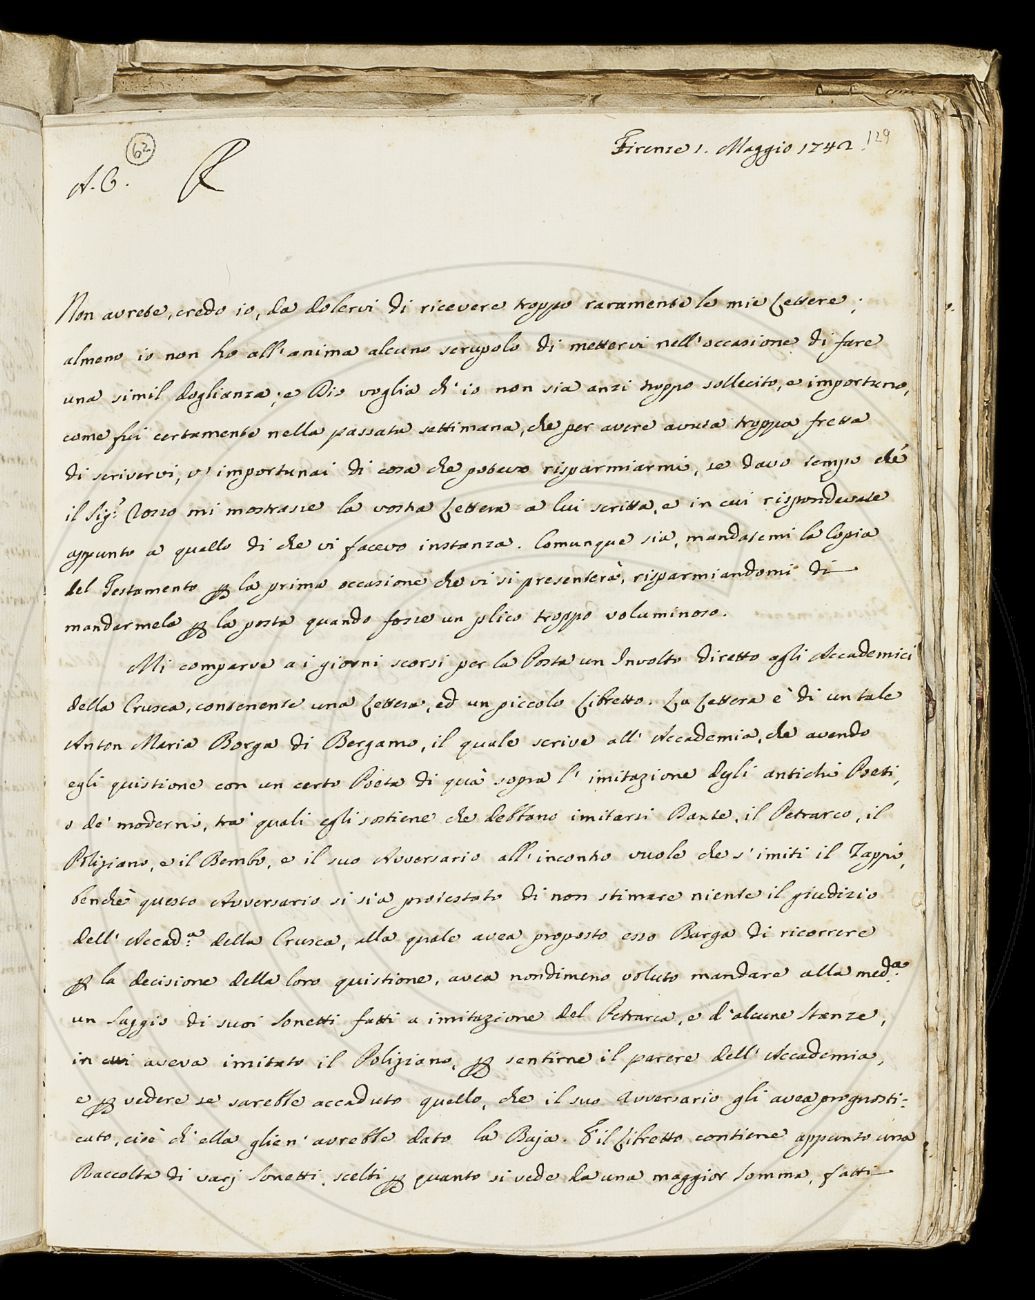 62
Firenze 1. Maggio 1742.
129
A. C. R
Non avrete, credo io, da dolervi di ricevere troppo raramente le mie Lettere;
almeno io non ho all'anima alcuno scrupolo di mettervi nell'occasione di fare
una simil doglianza; e Dio voglia ch'io non sia anzi troppo sollecito, e importuno,
come fui certamente nella passata settimana, che per avere avuta troppa fretta
di scrivervi, v'importunai di cosa che potevo risparmiarmi, se davo tempo che
il Sig.r mi mostrasse la vostra Lettera a lui scritta, e in cui rispondevate
appunto a quello di che vi facevo instanza. Comunque sia, mandatemi la Copia
del Testamento ꝑ la prima occasione che vi si presenterà, risparmiandomi di
mandarmela ꝑ la posta quando fosse un plico troppo voluminoso.
Mi comparve a i giorni scorsi per la Posta un Involto diretto agli Accademici
della Crusca, contenente una Lettera, ed un piccolo Libretto. La Lettera è di un tale
Anton Maria Borga di Bergamo, il quale scrive all'Accademia, che avendo
egli quistione con un certo Poeta di quà sopra l'imitazione degli antichi Poeti,
o de' moderni, tra' quali egli sostiene che debbano imitarsi Dante, il Petrarca, il
Poliziano, e il Bembo, e il suo Avversario all'incontro vuole che s'imiti il Zappi,
benchè questo Avversario si sia protestato di non stimare niente il giudizio
dell'Accad.a della Crusca, alla quale avea proposto esso Borga di ricorrere
ꝑ la decisione della loro quistione, avea nondimeno voluto mandare alla med.a
un Saggio di suoi Sonetti fatti a imitazione del Petrarca, e d'alcune Stanze,
in cui aveva imitato il Poliziano, ꝑ sentirne il parere dell'Accademia,
e ꝑ vedere se sarebbe accaduto quello, che il suo Avversario gli avea prognosti=
cato, cioè ch'ella glien'avrebbe dato la Baja. E il Libretto contiene appunto una
Raccolta di varj Sonetti, scelti ꝑ quanto si vede da una maggior somma, fatti